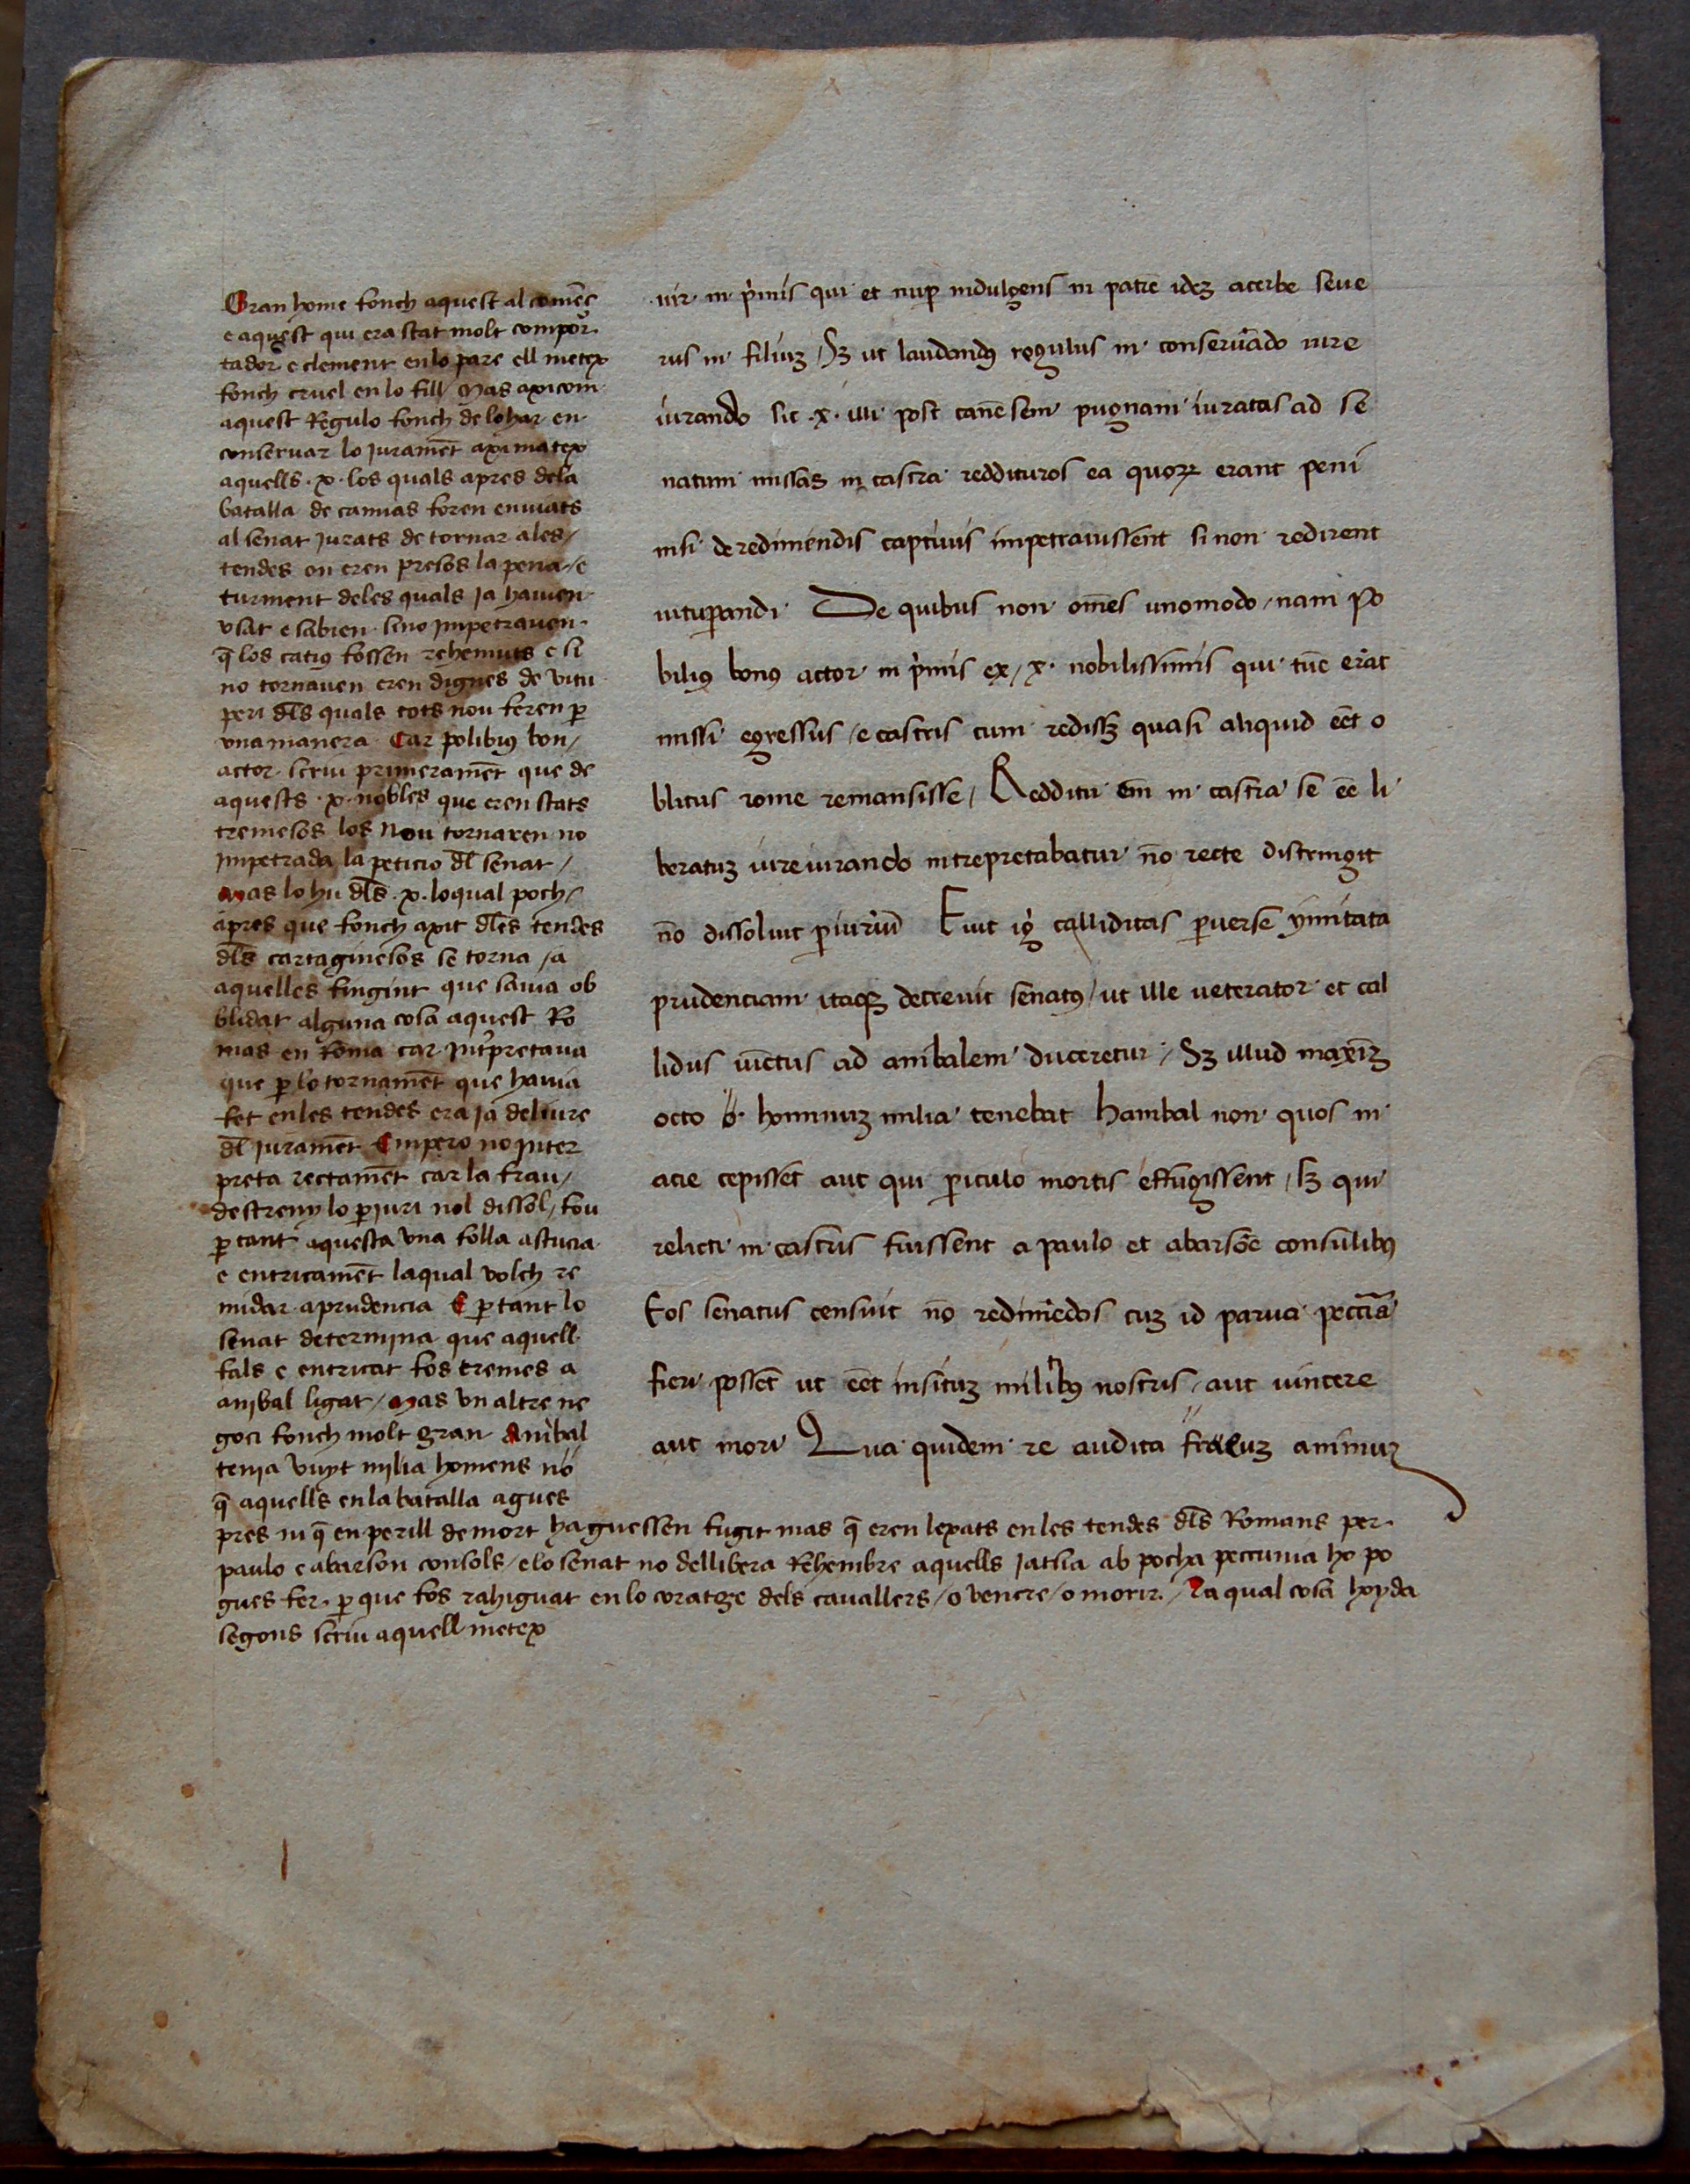 Gran home fonch aquest al comēç
e aquest qui era stat molt compor
tador e clement en lo pare ell metex
fonch cruel en lo fill / Mas axi com
aquest Regulo fonch de lohar en
conseruar lo Juramēt axi matex
aquells .x. los quals apres dela
batalla de cannas foren enuiats
al senat Jurats de tornar ales /
tendes on eren presos la pena / e
turment deles quals Ja hauien
vsat e sabien sino Impetrauen
q̄ los catius fossen rehemuts e si
no tornauen eren dignes de vitu
peri dl̄s quals tots nou feren ꝑ
vna manera Car polibiꝯ bon /
actor scriu primeramēt que de
aquests .x. nobles que eren stats
tremesos los Nou tornaren no
Impetrada la peticio dl̄ senat /
Mas lo hu dl̄s .x. loqual poch /
apres que fonch axit dl̄es tendes
dl̄s cartaginesos se torna / a
aquelles fingint que hauia ob
blidat alguna cosa aquest Ro
mas en Roma car Int̉pretaua
que ꝑ lo tornamēt que hauia
fet en les tendes era Ja deliure
dl̄ Juramēt Empero no Inter
preta rectamēt car la frau /
destreny lo ꝑJuri nol dissol / fou
ꝑ tant aquesta vna folla astucia
e entricamēt laqual volch re
midar a prudencia E ꝑ tant lo
senat determina que aquell
fals e entricat fos tremes a
anibal ligat / Mas vn altre ne
goci fonch molt gran Anibal
tenia vuyt milia homens nō
q̄ aquells en la batalla agues
pres ni q̄ en perill de mort haguessen fugit mas q̄ eren lexats en les tendes dl̄s Romans per
paulo e abarson consols / e lo senat no dellibera Rehembre aquells Jatsia ab pocha peccunia ho po
gues fer ꝑ que fos rahiguat en lo coratge dels cauallers / o vencre / o morir / La qual cosa hoyda
segons scriu aquell metex
uir in p̉mis qui et nuꝑ indulgens in patrē idez acerbe seue
rus in filiuz / Sz ut laudandꝯ regulus in conseruādo iure
iurando sic .x. illi post canēsem pugnam iuratas ad se
natum missas in castra reddituros ea quoꝝ erant peni
nisi de redimendis captiuis impetrauissent si non redirent
uituꝑandi De quibus non om̄es uno modo / nam Po
biliꝯ bonꝯ actor in p̉mis ex / x. nobilissimis qui tūc erāt
missi egressus / e castris cum redissz quasi aliquid eēt o
blitus rome remansisse / Redditu em̄ in castra se eē li
beratuz iureiurando intrepretabatur nō recte distringit
nō dissoluit ꝑiuriū Fuit igͥ calliditas ꝑuerse ymitata
prudenciam itaqz decreuit senatꝯ / ut ille ueterator et cal
lidus uictus ad anibalem duceretur / Sz illud maxīz
octo hominuz milia tenebat hanibal non quos in
acie cepisset aut qui ꝑiculo mortis effugissent / sz qui
relicti in castris fuissent a paulo et abarsōe consulibꝯ
Eos senatus censuit nō redimēdos cuz id parua peccīa
fieri posset ut eēt insituz militibꝯ nostris / aut uincere
aut mori Qua quidem re audita fractuz animuz